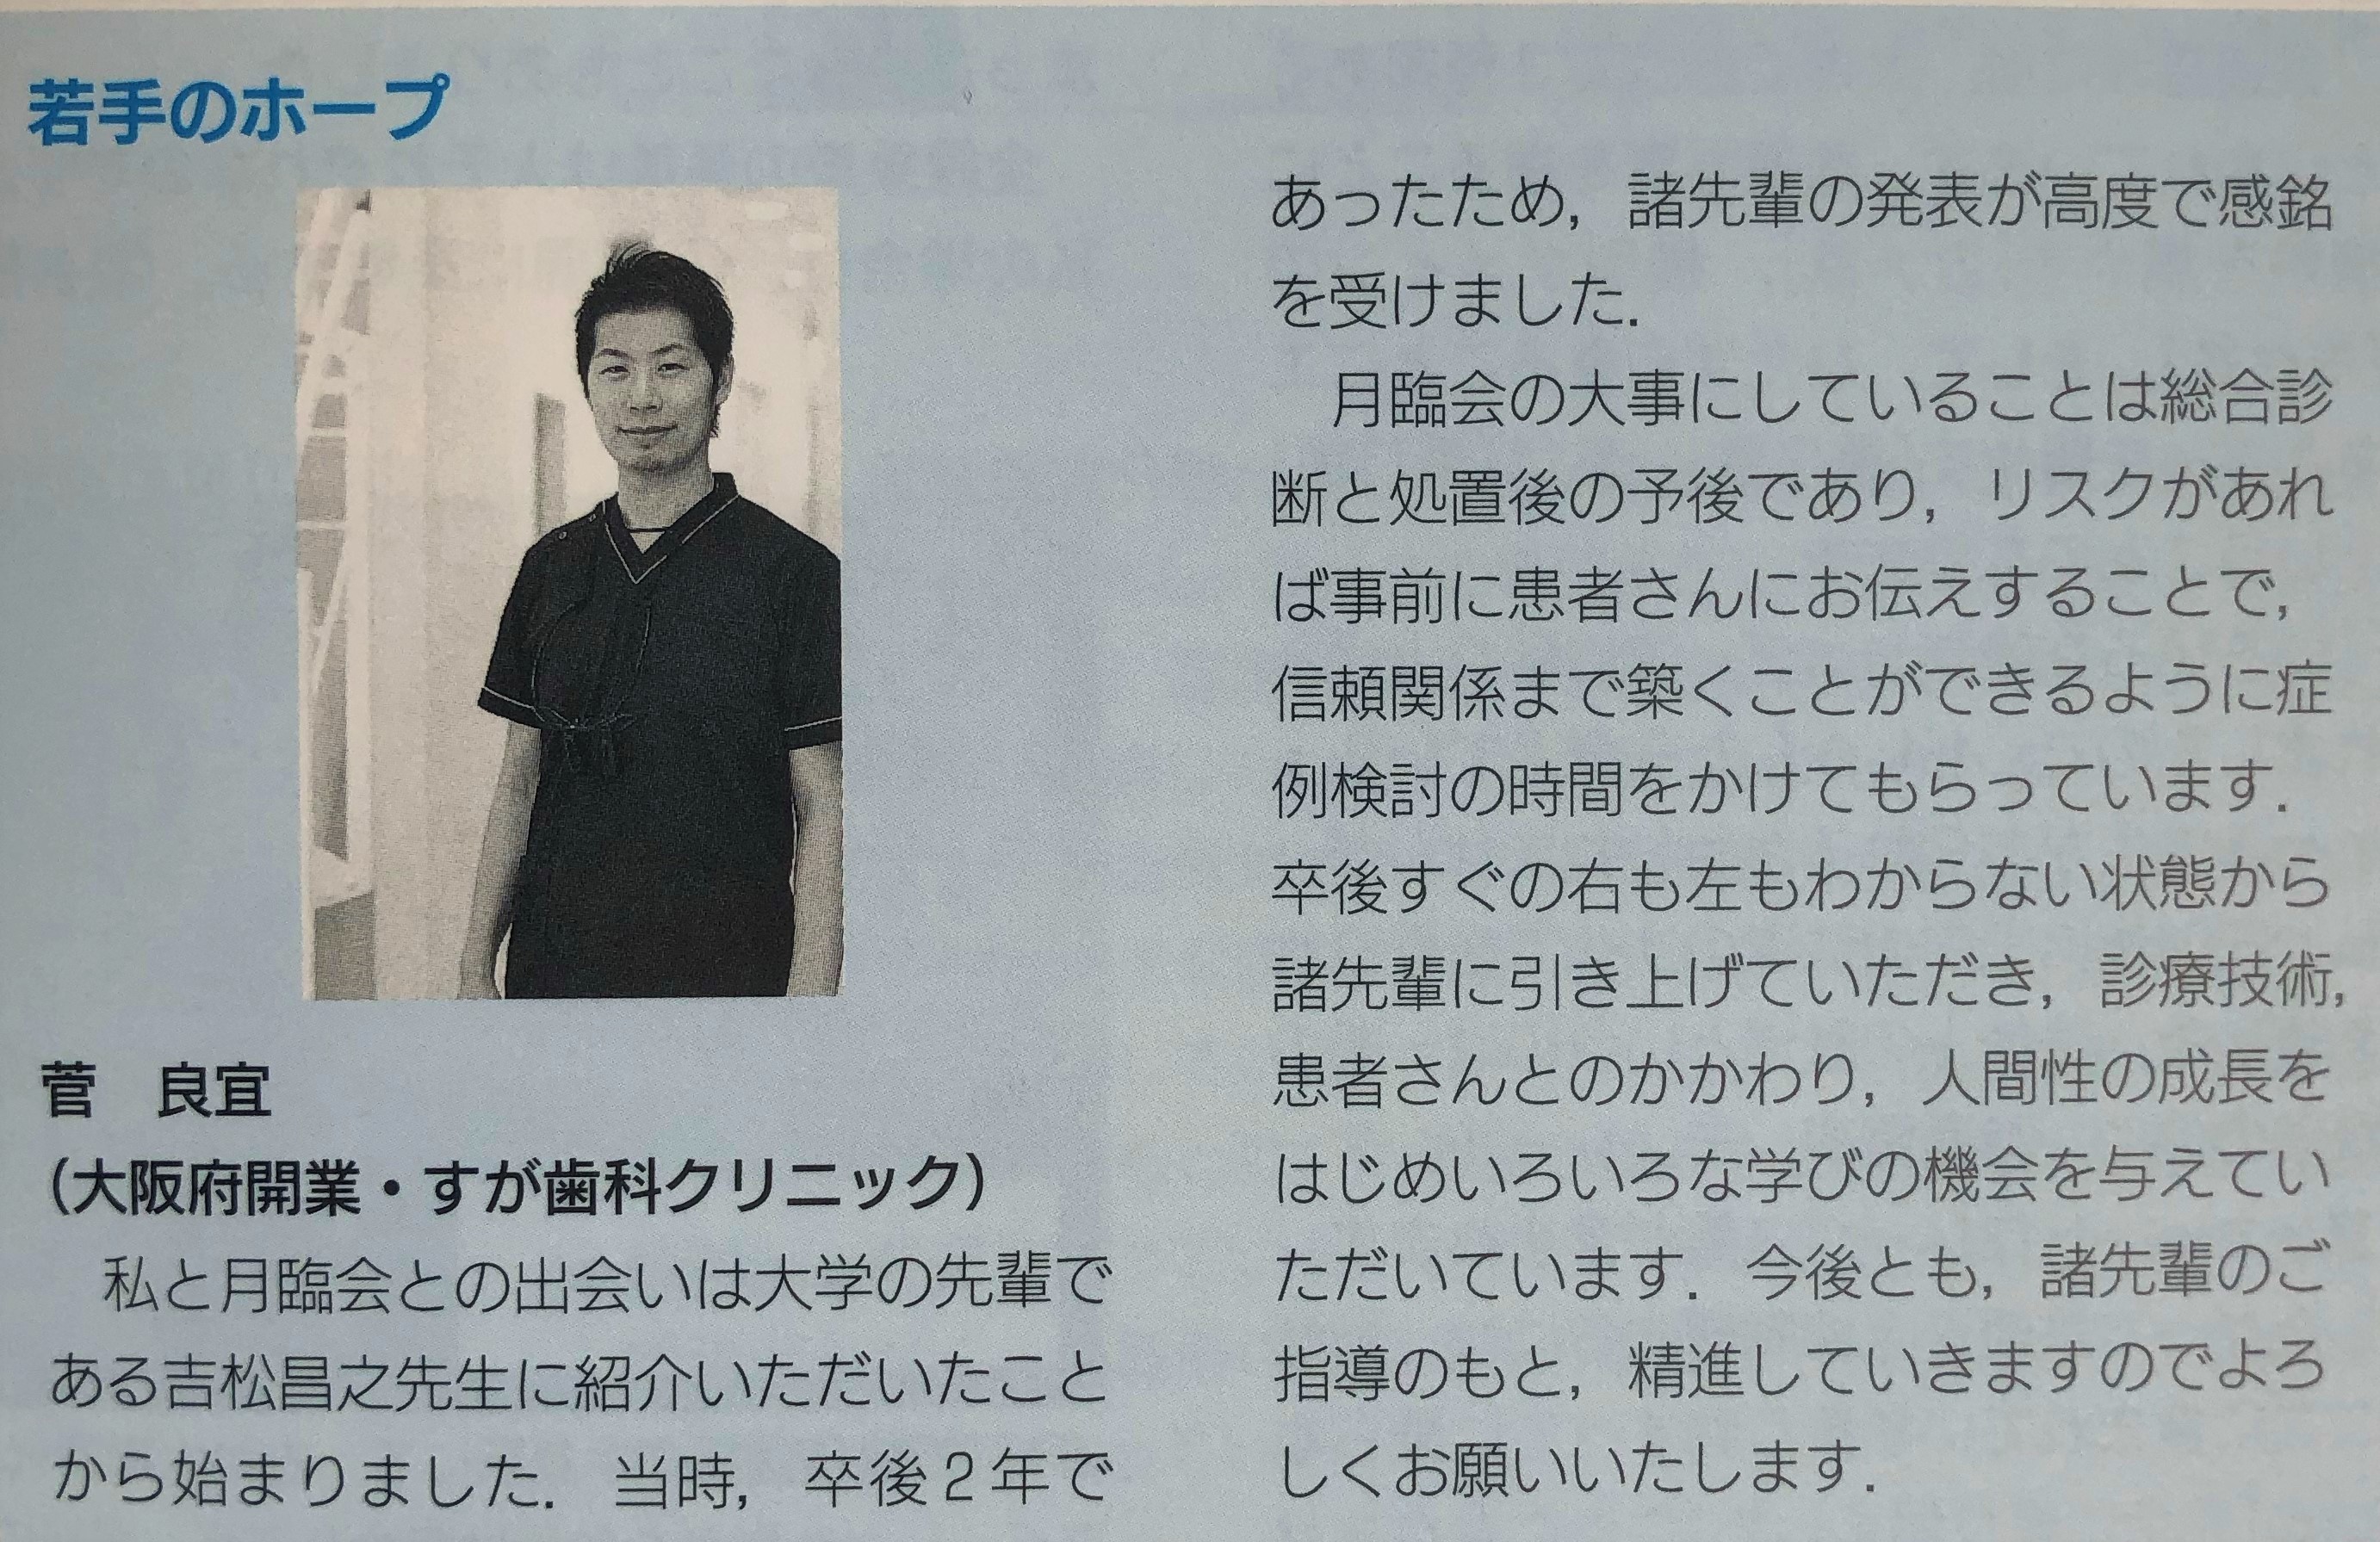 若手のホープ
菅　良宜
（大阪府開業・すが歯科クリニック）
　私と月臨会との出会いは大学の先輩で
ある吉松昌之先生に紹介いただいたこと
から始まりました．当時，卒後２年で
あったため，諸先輩の発表が高度で感銘
を受けました．
　月臨会の大事にしていることは総合診
断と処置後の予後であり，リスクがあれ
ば事前に患者さんにお伝えすることで，
信頼関係まで築くことができるように症
例検討の時間をかけてもらっています．
卒後すぐの右も左もわからない状態から
諸先輩に引き上げていただき，診療技術，
患者さんとのかかわり，人間性の成長を
はじめいろいろな学びの機会を与えてい
ただいています．今後とも，諸先輩のご
指導のもと，精進していきますのでよろ
しくお願いいたします．